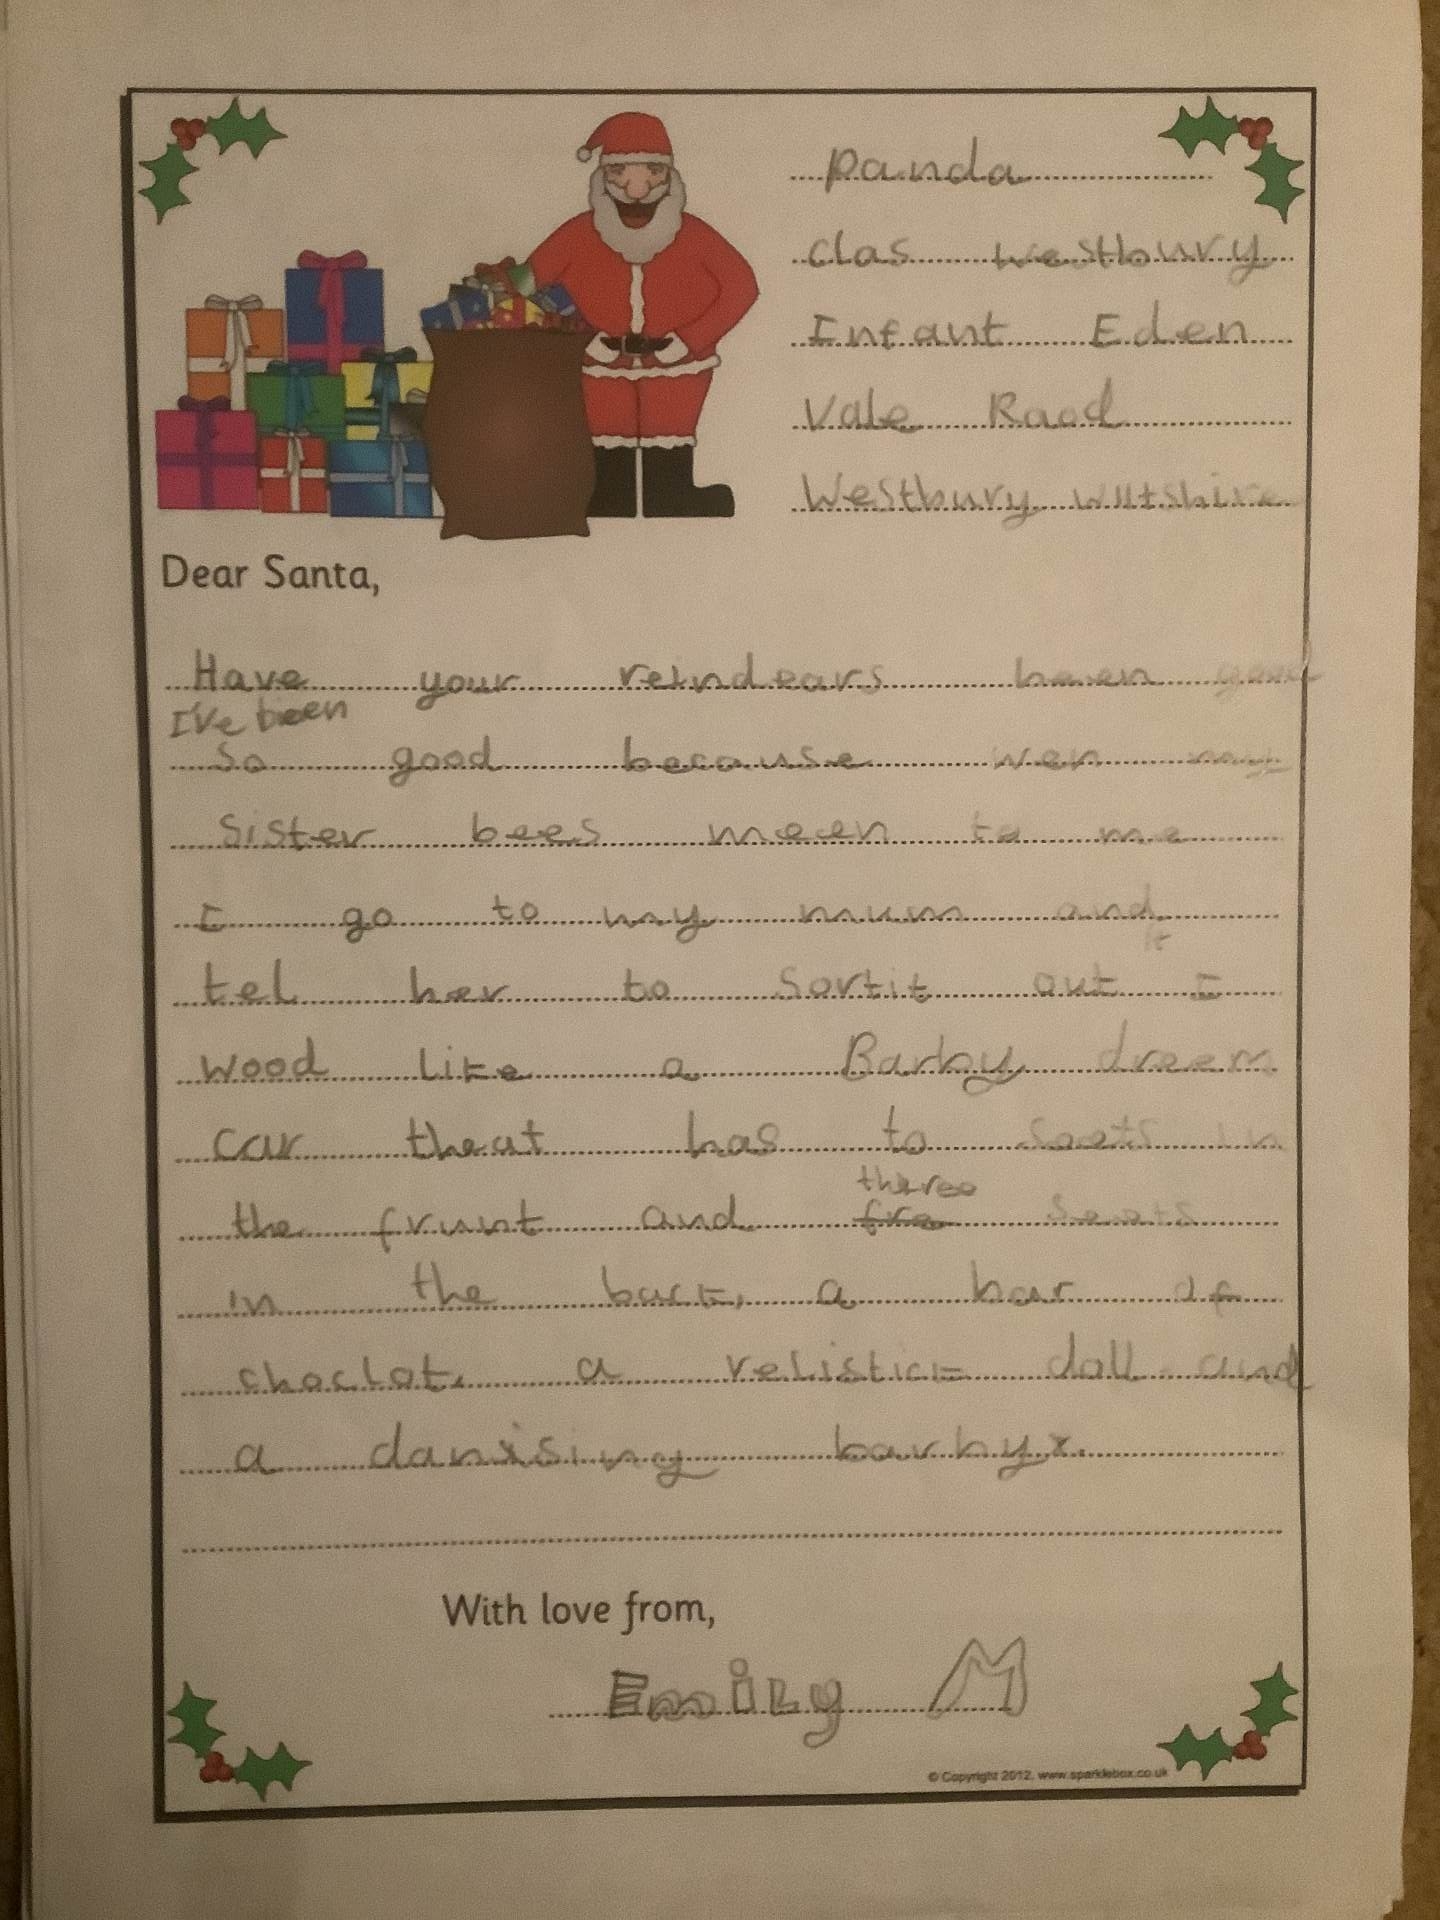 panda
clas westbury
Infant Eden
Vale Raod
Westbury Wiltshire
Dear Santa,
Have your reindears been good
I've been
so good because wen my
sister bees meen to me
I go to my mum and
tel her to sort it out I
wood like a Barby dreem
car theat has to seets in
the frunt and three seats
in the back, a bar of
choclat, a relistick doll and
a dansing barby x.
With love from,
Emily M
© Copyright 2012, www.sparklebox.co.uk